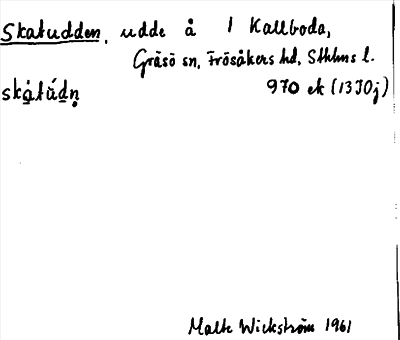 Skatudden, udde å 1 Kallboda,
Gräsö sn, Frösåkers hd, Sthlms l.
skå̱túḏṇ 970 ek (13I0j)
Malte Wickström 1961